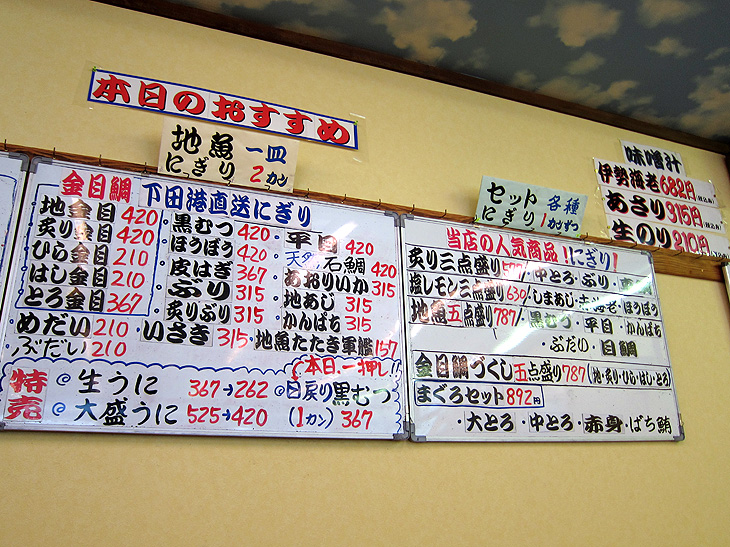 本日のおすすめ
地魚 一皿
にぎり 2カン
セット 各種
にぎり 1カンずつ
味噌汁
伊勢海老 682円(税込み)
あさり 315円(税込み)
生のり 210円(税込み)
金目鯛
地金目 420
炙り金目 420
ひら金目 210
はし金目 210
とろ金目 367
めだい 210
ぶだい 210
下田港直送にぎり
黒むつ 420
ほうぼう 420
皮はぎ 367
ぶり 315
炙りぶり 315
いさき 315
平目 420
天然石鯛 420
あおりいか 315
地あじ 315
かんぱち 315
地魚たたき軍艦 157
特売
生うに 367→262
大盛うに 525→420
本日、一押し!!
目戻り黒むつ
(1カン) 367
当店の人気商品!!にぎり!
炙り三点盛り ・中とろ・ぶり・
塩レモン三点盛り 630 ・しまあじ・ ・ほうぼう
地魚五点盛り 787 ・黒むつ・平目・かんぱち
・ぶだい・目鯛
金目鯛づくし五点盛り 787 (地・炙り・ひら・はし・とろ)
まぐろセット 892円
・大とろ・中とろ・赤身・ばち鮪